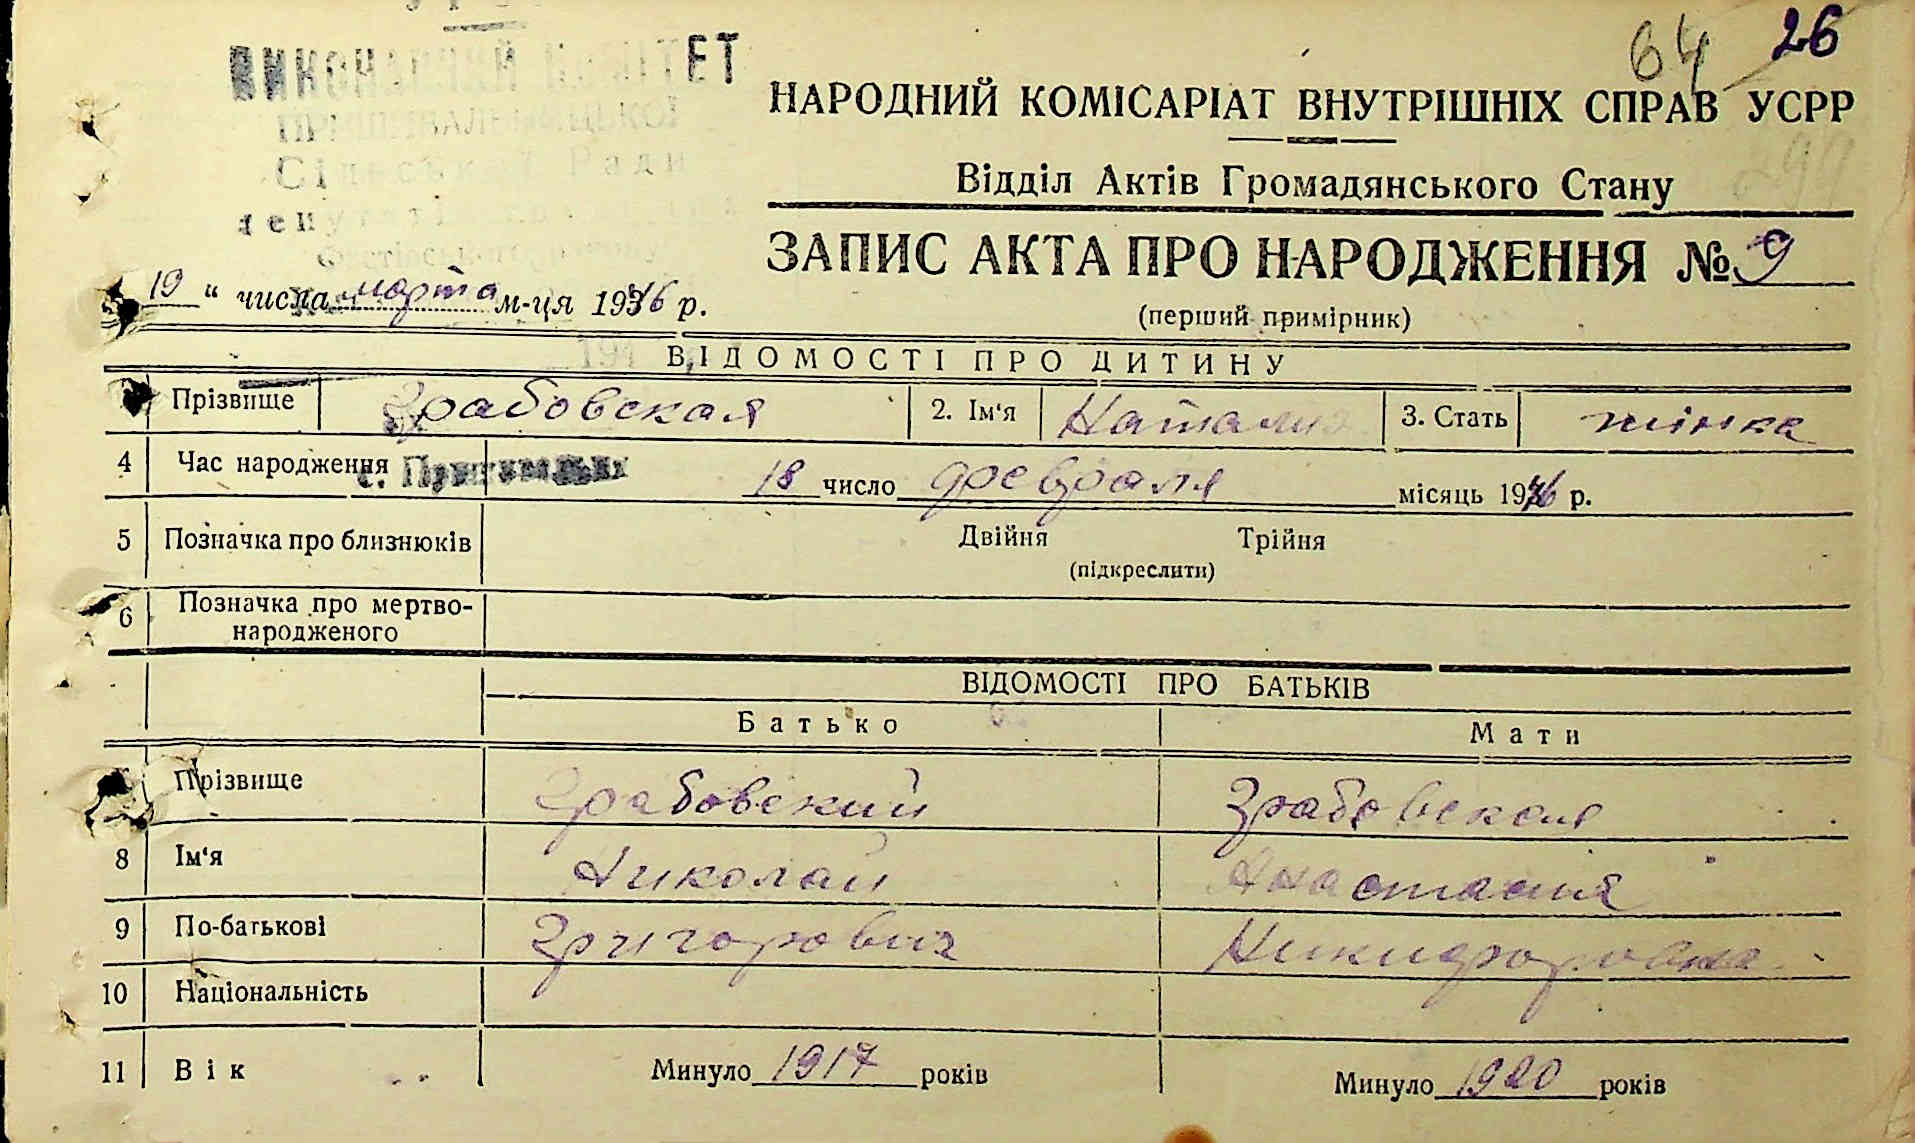 64 26
ВИКОНАВЧИЙ КОМІТЕТ
Сільської Ради
НАРОДНИЙ КОМІСАРІАТ ВНУТРІШНІХ СПРАВ УСРР
Відділ Актів Громадянського Стану
ЗАПИС АКТА ПРО НАРОДЖЕННЯ № 9
(перший примірник)
19 " числа марта м-ця 1946 р.
ВІДОМОСТІ ПРО ДИТИНУ
Прізвище Грабовская 2. Ім'я Наталия 3. Стать жінка
4 Час народження 18 число февраля місяць 1946 р.
5 Позначка про близнюків Двійня Трійня
(підкреслити)
6 Позначка про мертво-
народженого
ВІДОМОСТІ ПРО БАТЬКІВ
Батько Мати
Прізвище Грабовский Грабовская
8 Ім'я Николай Анастасия
9 По-батькові Григорович Никифоровна
10 Національність
11 Вік Минуло 1917 років Минуло 1920 років